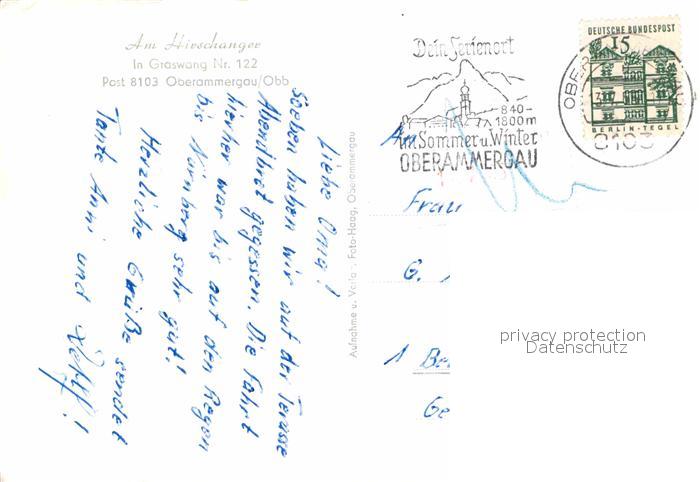 Am Hirschanger
In Graswang Nr. 122
Post 8103 Oberammergau/Obb
Liebe Oma!
Soeben haben wir auf der Terasse
Abendbrot gegessen. Die Fahrt
hierher war bis auf den Regen
bis Nürnberg sehr gut!
Herzliche Grüße sendet
Tante Anni und
Aufnahme u. Verlag: Foto-Haag, Oberammergau
Dein Ferienort
840-
1800m
Im Sommer u. Winter
OBERAMMERGAU
DEUTSCHE BUNDESPOST
15
BERLIN-TEGEL
OBER
8103
An
Frau
G.
1 Be
Ge
privacy protection
Datenschutz